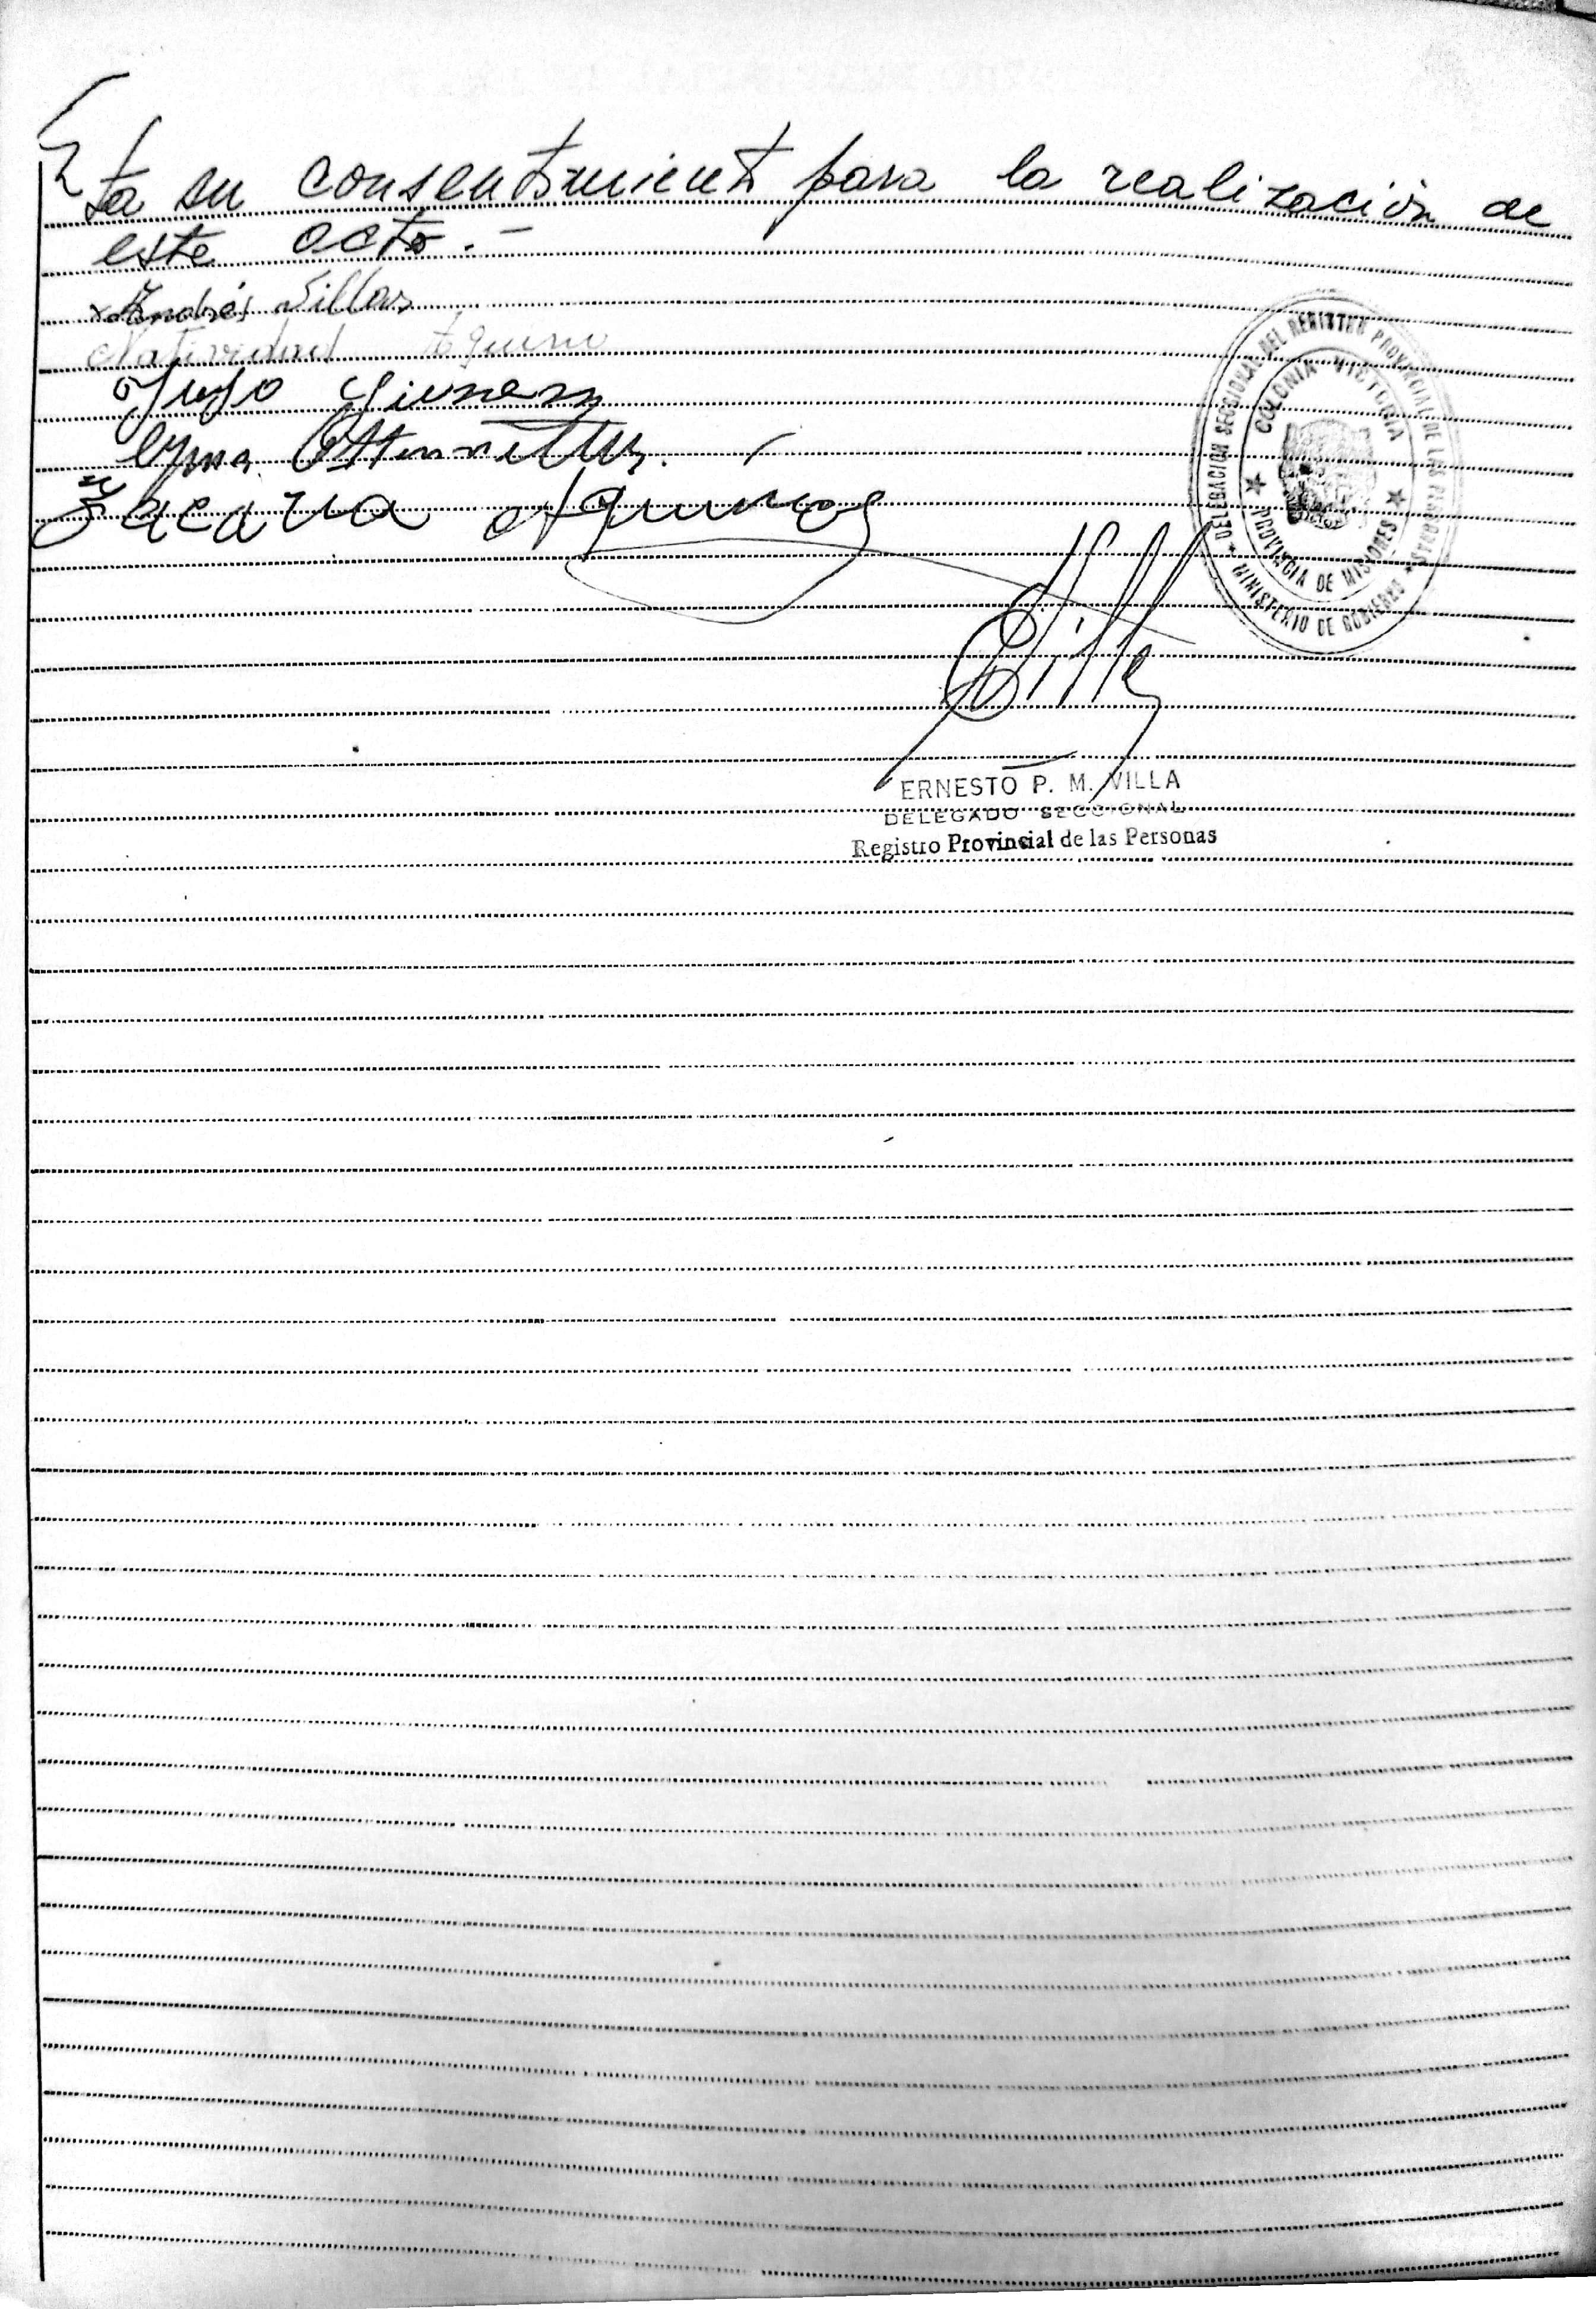 ta su consentimiento para la realización de
este acto.-
x Andrés Sillas
Natividad Aquino
Hugo
Zacaria Aquino
DELEGACION SECCIONAL DEL REGISTRO PROVINCIAL DE LAS PERSONAS
COLONIA VICTORIA
PROVINCIA DE MISIONES
MINISTERIO DE GOBIERNO
ERNESTO P. M. VILLA
DELEGADO SECCIONAL
Registro Provincial de las Personas